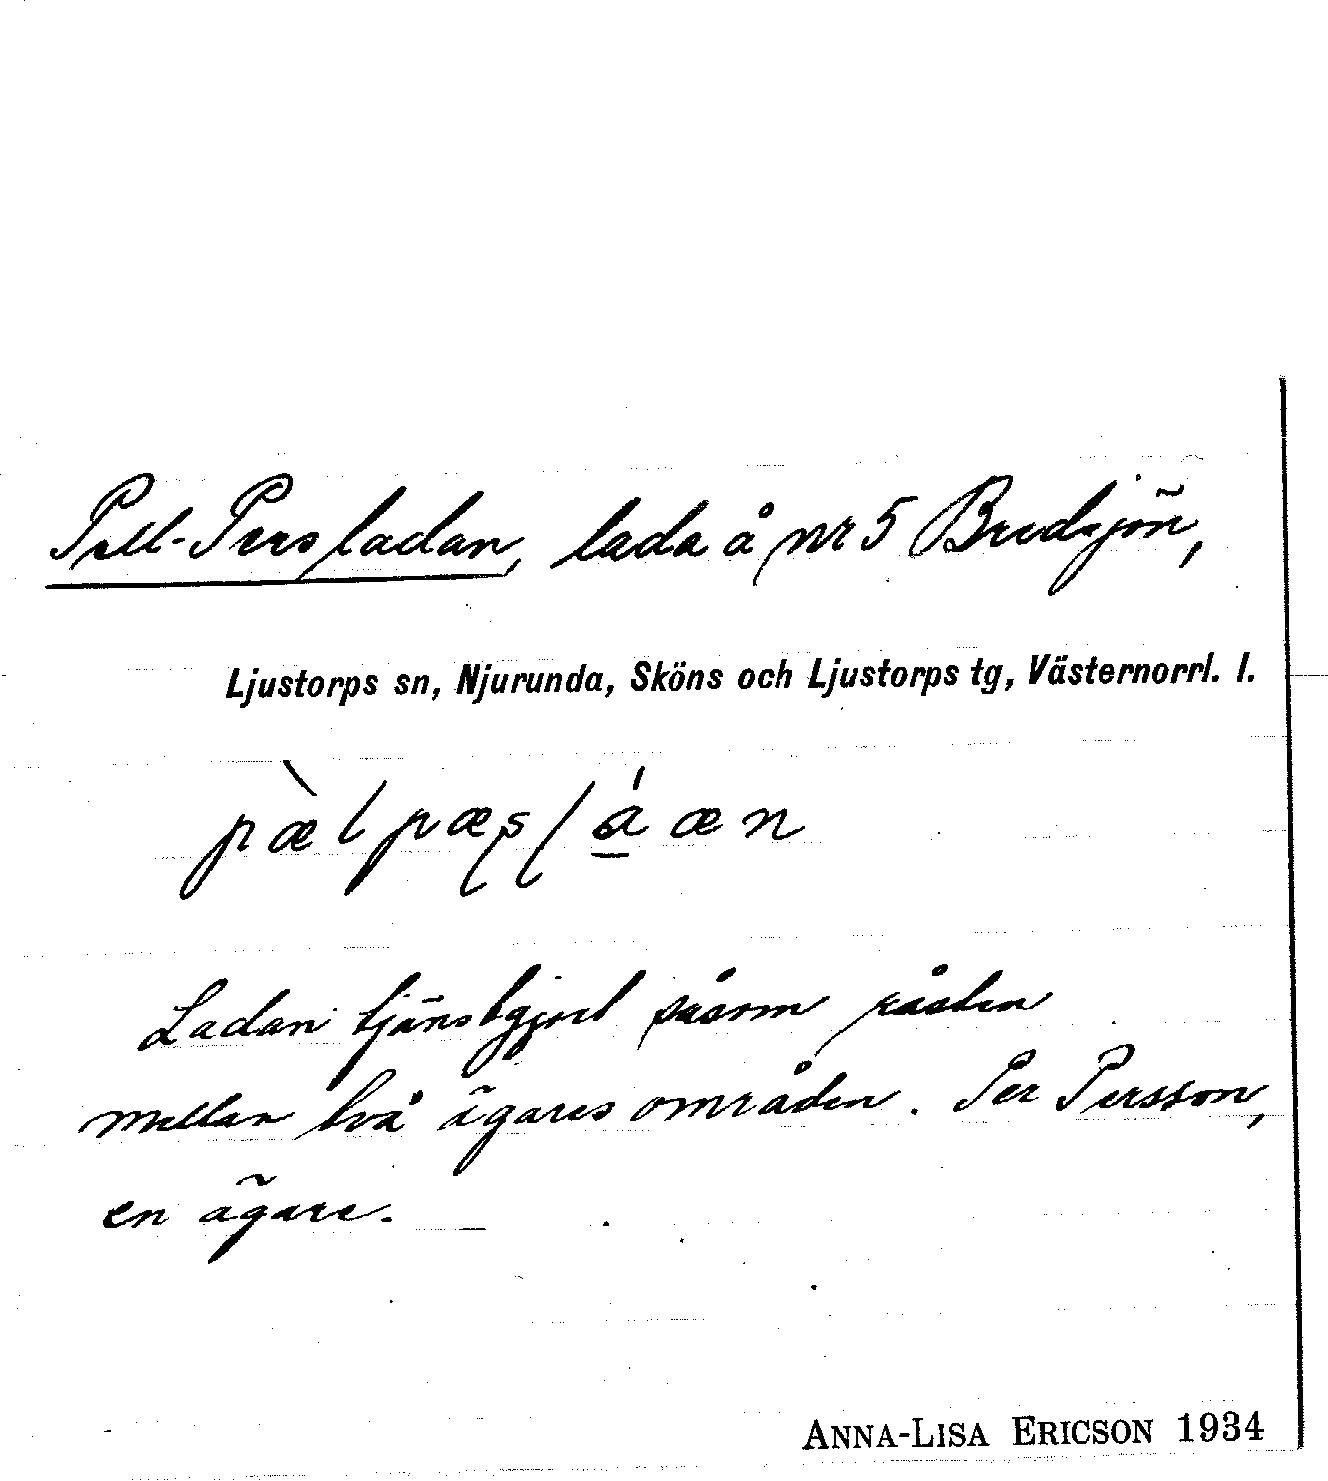 Pell-Persladan, lada å nr 5 Bredsjön,
Ljustorps sn, Njurunda, Sköns och Ljustorps tg, Västernorrl. l.
pæ̀lpæʂɭáæn
Ladan tjänstgjort såsom råsten
mellan två ägares områden. Per Persson,
en ägare.
ANNA-LISA ERICSON 1934